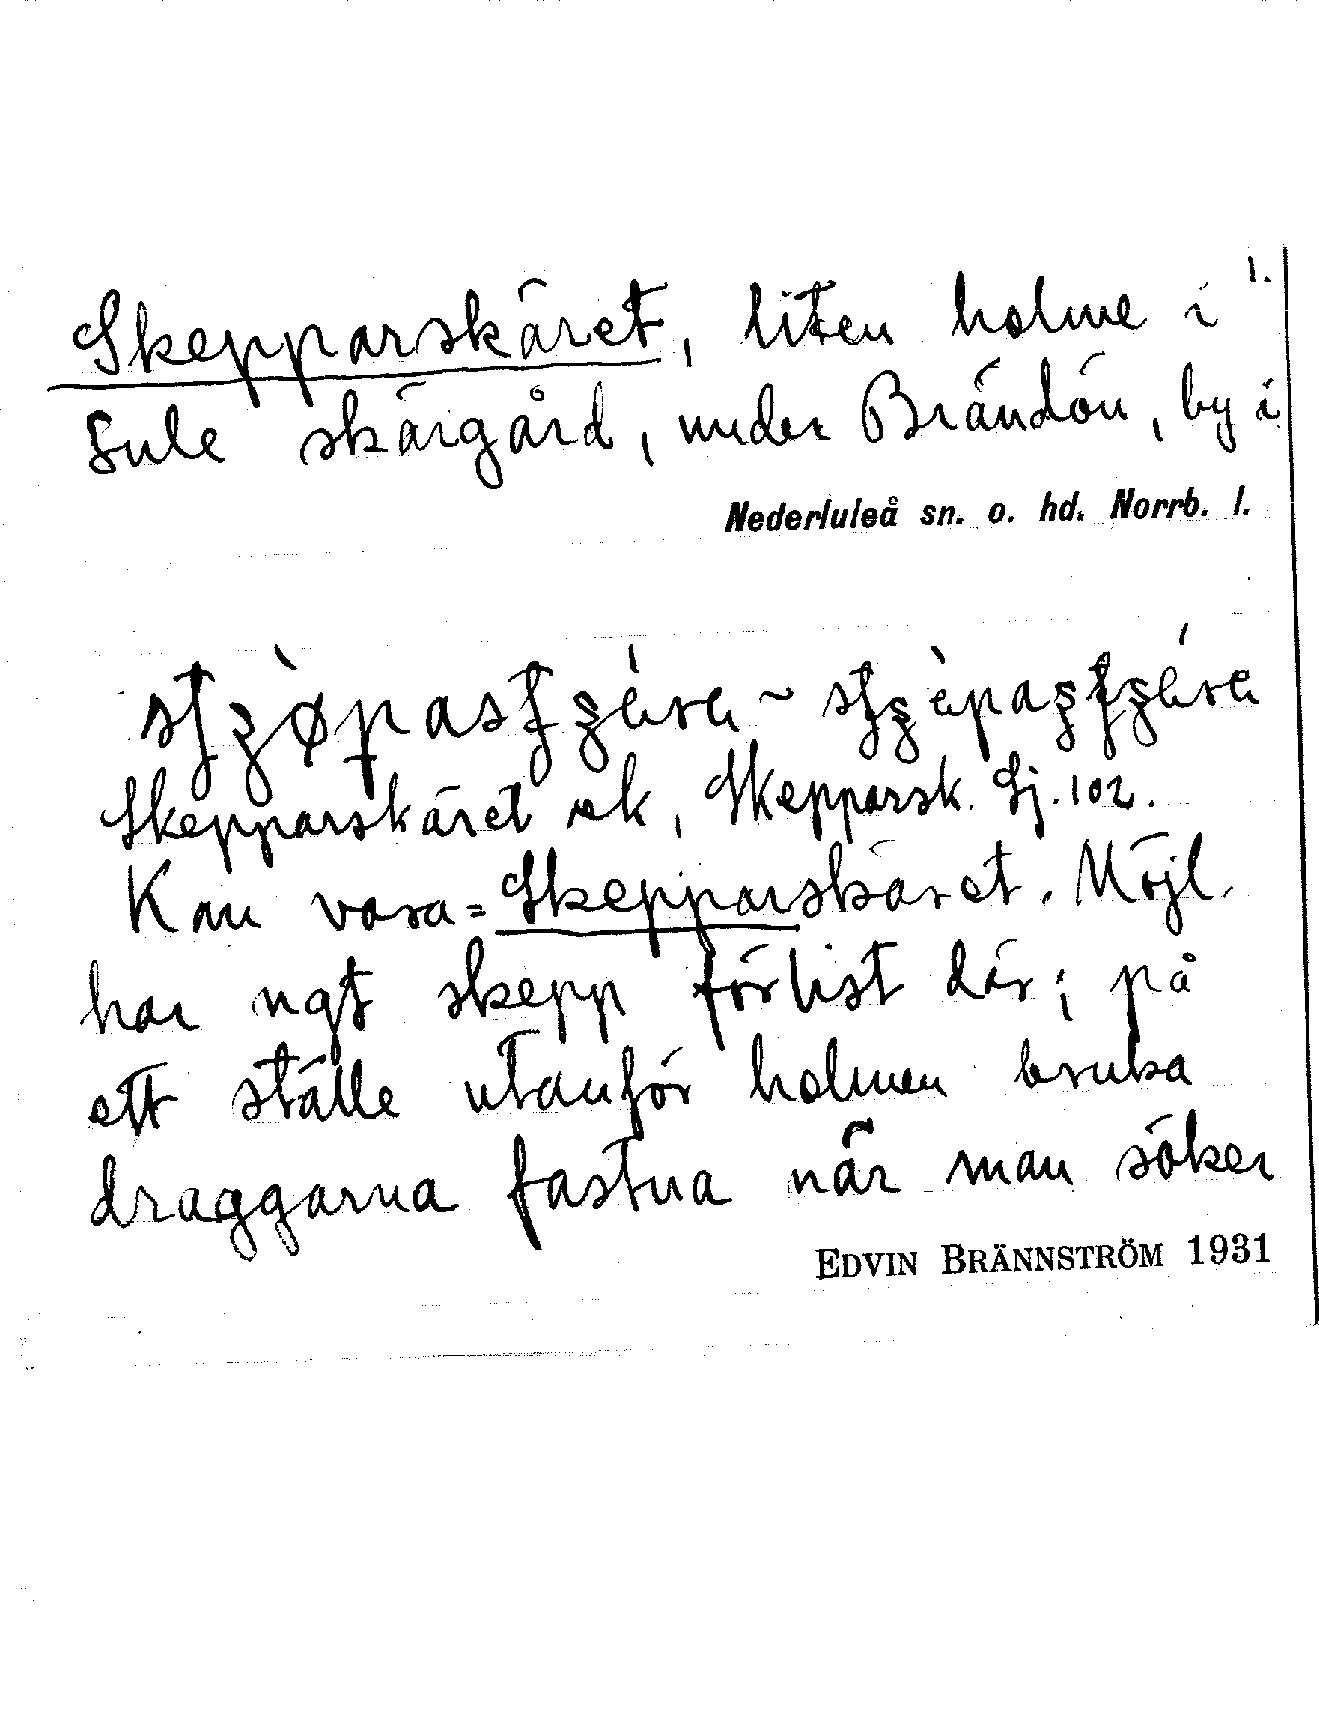 1.
Skepparskäret, liten holme i
Lule skärgård, under Brändön, by i
Nederluleå sn. o. hd. Norrb. l.
Skepparskäret ek, Skepparsk. Sj. 102.
Kan vara = Skepparskäret. Möjl.
har ngt skepp förlist där; på
ett ställe utanför holmen bruka
draggarna fastna när man söker
EDVIN BRÄNNSTRÖM 1931